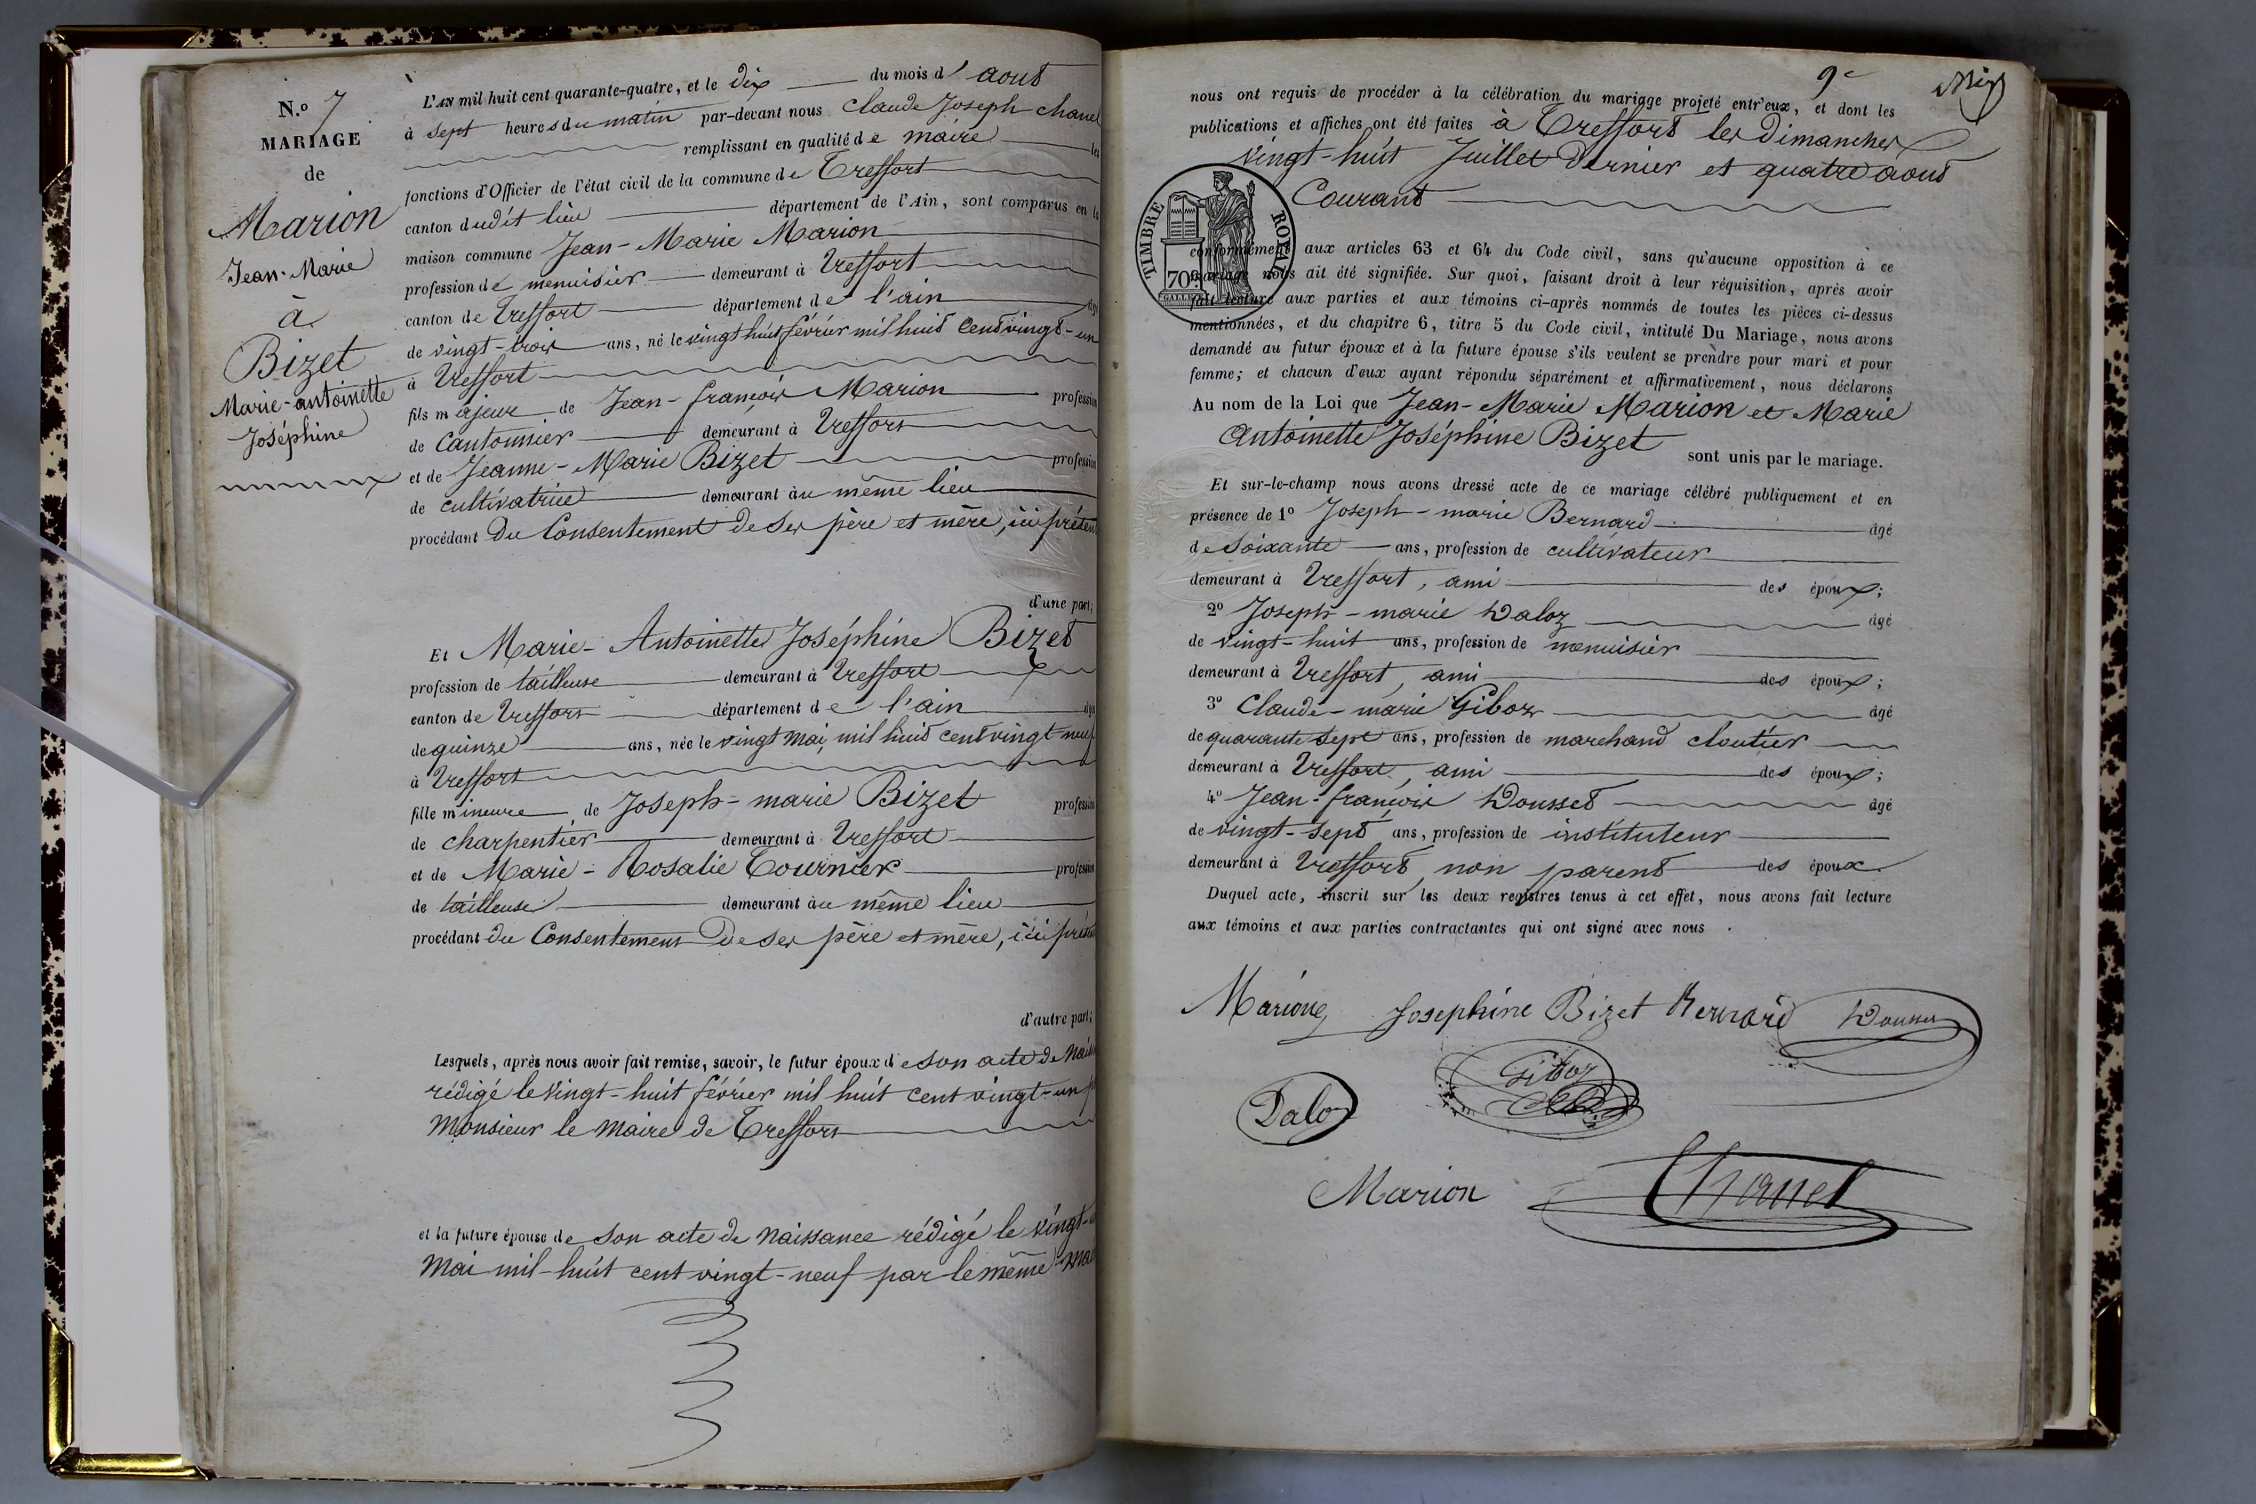 N.o 7
MARIAGE
de
Marion
Jean-Marie
à
Bizet
Marie-antoinette
Joséphine
L'AN mil huit cent quarante-quatre, et le dix du mois d'aout
à sept heures du matin par-devant nous Claude Joseph Chanel
remplissant en qualité de maire les
fonctions d'Officier de l'état civil de la commune de Treffort
canton dudit lieu département de l'Ain, sont comparus en la
maison commune Jean-Marie Marion
profession de menuisier demeurant à Treffort
canton de Treffort département de l'ain âgé
de vingt-trois ans, né le vingt huit février mil huit cent vingt-un
à Treffort
fils majeur de Jean-françois Marion profession
de Cantonnier demeurant à Treffort
et de Jeanne-Marie Bizet profession
de cultivatrice demeurant au même lieu
procédant du Consentement de ses père et mère, ici présen
d'une part;
Et Marie-Antoinette Joséphine Bizet
profession de tailleuse demeurant à Treffort
canton de Treffort département de l'ain âgée
de quinze ans, née le vingt mai mil huit cent vingt neuf
à Treffort
fille mineure de Joseph-marie Bizet profession
de charpentier demeurant à Treffort
et de Marie-Rosalie Tournier profession
de tailleuse demeurant au même lieu
procédant du Consentement de ses père et mère, ici présen
d'autre part;
Lesquels, après nous avoir fait remise, savoir, le futur époux de son acte de Nais
rédigé le vingt-huit février mil huit cent vingt-un p
Monsieur le Maire de Treffort
et la future épouse de son acte de Naissance rédigé le vingt-
Mai mil-huit cent vingt-neuf par le même Mai
9e
nous ont requis de procéder à la célébration du mariage projeté entr'eux, et dont les
publications et affiches ont été faites à Treffort les Dimanches
vingt-huit Juillet Dernier et quatre aout
Courant
TIMBRE ROYAL
70c
conformément aux articles 63 et 64 du Code civil, sans qu'aucune opposition à ce
mariage nous ait été signifiée. Sur quoi, faisant droit à leur réquisition, après avoir
fait lecture aux parties et aux témoins ci-après nommés de toutes les pièces ci-dessus
mentionnées, et du chapitre 6, titre 5 du Code civil, intitulé Du Mariage, nous avons
demandé au futur époux et à la future épouse s'ils veulent se prendre pour mari et pour
femme; et chacun d'eux ayant répondu séparément et affirmativement, nous déclarons
Au nom de la Loi que Jean-Marie Marion et Marie
Antoinette Joséphine Bizet
sont unis par le mariage.
Et sur-le-champ nous avons dressé acte de ce mariage célébré publiquement et en
présence de 1o Joseph-marie Bernard âgé
de Soixante ans, profession de cultivateur
demeurant à Treffort, ami des époux;
2o Joseph-marie Daloz âgé
de vingt-huit ans, profession de menuisier
demeurant à Treffort, ami des époux;
3o Claude-marie Giboz âgé
de quarante sept ans, profession de marchand cloutier
demeurant à Treffort, ami des époux;
4o Jean-françois Dousset âgé
de vingt-sept ans, profession de instituteur
demeurant à Treffort, non parent des époux.
Duquel acte, inscrit sur les deux registres tenus à cet effet, nous avons fait lecture
aux témoins et aux parties contractantes qui ont signé avec nous.
Josephine Bizet Bernard Dousset
Giboz
Daloz
Marion Chanel